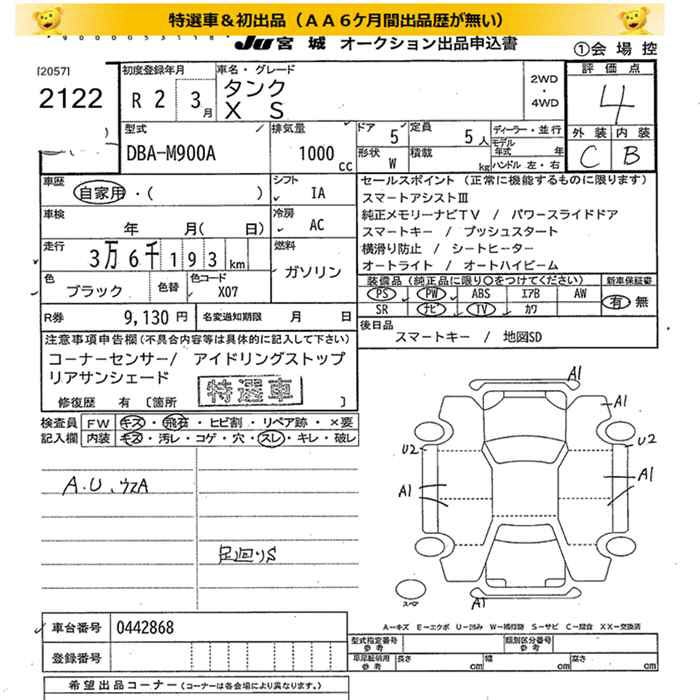 特選車＆初出品（ＡＡ６ケ月間出品歴が無い）
JU 宮城 オークション出品申込書
①会場控
[2057]
2122
初度登録年月
R 2 3月
車名・グレード
タンク
X S
2WD
・
4WD
評価点
4
外装 内装
C B
型式
DBA-M900A
排気量
1000 cc
ドア 5
定員 5人
形状 W
積載 kg
ディーラー・並行
モデル年式 年
ハンドル 左・右
車歴
自家用・( )
シフト
IA
車検
年 月( 日)
冷房
AC
走行
3万6千193km
燃料
ガソリン
色
ブラック
色替
色コード
X07
R券
9,130円
名変通知期限 月 日
セールスポイント（正常に機能するものに限ります）
スマートアシストⅢ
純正メモリーナビTV / パワースライドドア
スマートキー / プッシュスタート
横滑り防止 / シートヒーター
オートライト / オートハイビーム
装備品（純正品に限り○をつけてください）
PS PW ABS エアB AW
SR ナビ TV カワ
新車保証書
有・無
後日品
スマートキー / 地図SD
注意事項申告欄(不具合内容等は具体的に記入して下さい)
コーナーセンサー/ アイドリングストップ
リアサンシェード
特選車
修復歴 有 〔箇所 〕
検査員記入欄
FW キズ・飛石・ヒビ割・リペア跡・×要
内装 キズ・汚レ・コゲ・穴・スレ・キレ・破レ
A.U.ウスA
足回りS
A1
A1
U2
U2
A1
A1
A1
スペア
A－キズ E－エクボ U－凹み W－補修跡 S－サビ C－腐食 XX－交換済
車台番号 0442868
登録番号
型式指定番号
参考
類別区分番号
参考
車庫証明用
参考
長さ cm
幅 cm
高さ cm
希望出品コーナー(コーナーは各会場により異なります。)